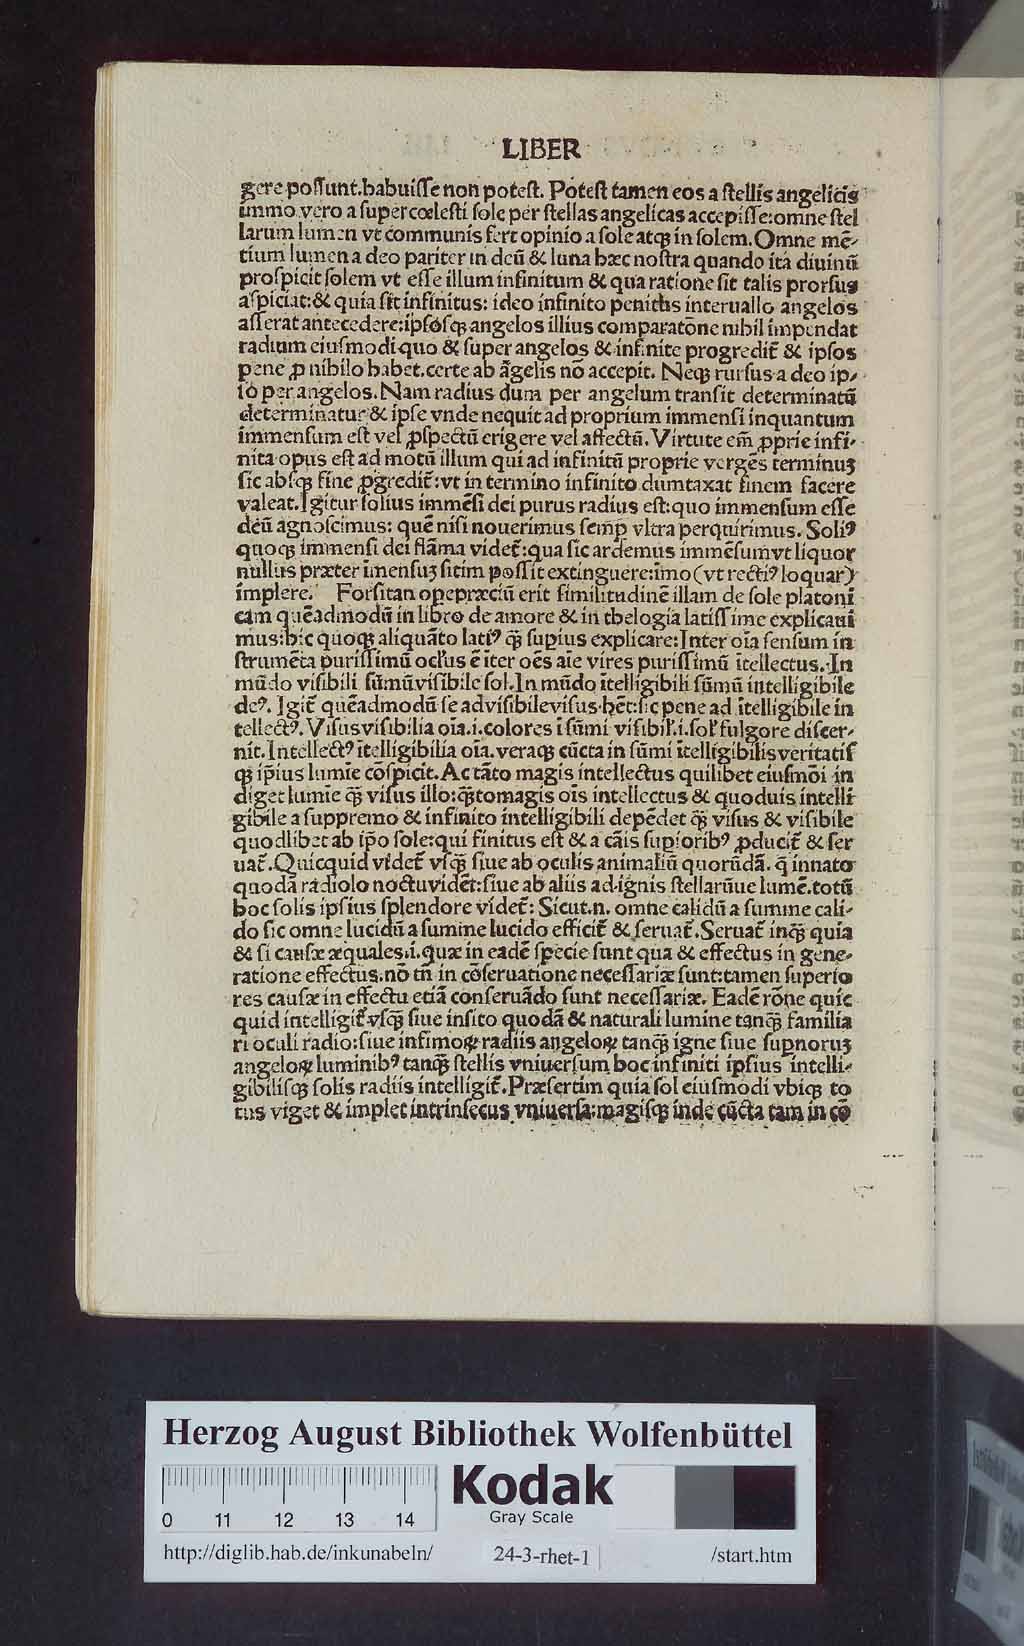 LIBER
gere possunt.habuisse non potest. Potest tamen eos a stellis angelicis
immo vero a supercœlesti sole per stellas angelicas accepisse:omne stel
larum lumen vt communis fert opinio a sole atqꝫ in solem. Omne mē-
tium lumen a deo pariter in deū & luna hæc nostra quando ita diuinū
prospicit solem vt esse illum infinitum & qua ratione sit talis prorsus
aspiciat:& quia sit infinitus: ideo infinito penitus interuallo angelos
asserat antecedere:ipsosqꝫ angelos illius comparatōne nihil impendat
radium eiusmodi quo & super angelos & infinite progredit̄ & ipsos
pene ꝓ nihilo habet.certe ab āgelis nō accepit. Neqꝫ rursus a deo ip-
so per angelos. Nam radius dum per angelum transit determinatū
determinatur & ipse vnde nequit ad proprium immensi inquantum
immensum est vel ꝓspectū erigere vel affectū. Virtute em̄ ꝓprie infi-
nita opus est ad motū illum qui ad infinitū proprie vergēs terminuꝫ
sic absqꝫ fine ꝓgredit̄:vt in termino infinito dumtaxat finem facere
valeat. Igitur solius immēsi dei purus radius est:quo immensum esse
deū agnoscimus: quē nisi nouerimus semꝑ vltra perquirimus. Soliꝰ
quoqꝫ immensi dei flāma videt̄:qua sic ardemus immēsum vt liquor
nullus præter īmensuꝫ sitim possit extinguere:īmo (vt rectiꝰ loquar)
implere. Forsitan operæciū erit similitudinē illam de sole platoni
cam quēadmodū in libro de amore & in thelogia latissime explicaui
mus:hic quoqꝫ aliquāto latiꝰ qꝫ̄ suꝑius explicare:Inter oīa sensum in
strumēta purissimū oclus ē īter oēs aīe vires purissimū ītellectus. In
mūdo visibili sūmū visibile sol. In mūdo ītelligibili sūmū intelligibile
deꝰ. Igit̄ quēadmodū se ad visibile visus hēt:sic pene ad ītelligibile in
tellectꝰ. Visus visibilia oīa.i.colores ī sūmi visibil'.i.sol' fulgore discer-
nit. Intellectꝰ ītelligibilia oīa.veraqꝫ cūcta in sūmi ītelligibilis veritatis
qꝫ ip̄ius lumīe cōspicit. Ac tāto magis intellectus quilibet eiusmōi in
diget lumīe qꝫ̄ visus illo:qꝫ̄to magis oīs intellectus & quoduis intelli
gibile a suppremo & infinito intelligibili depēdet qꝫ̄ visus & visibile
quodlibet ab ip̄o sole:qui finitus est & a cāis suꝑioribꝰ ꝓducit̄ & ser
uat̄. Quicquid videt̄ vsqꝫ̄ siue ab oculis animaliū quorūdā. q̄ innato
quodā radiolo noctu vidēt:siue ab aliis ad ignis stellarūue lumē.totū
hoc solis ipsius splendore videt̄: Sicut.n. omne calidū a summe cali-
do sic omne lucidū a summe lucido efficit̄ & seruat̄. Seruat̄ inqꝫ̄ quia
& si causæ æquales.i. quæ in eadē specie sunt qua & effectus in gene-
ratione effectus:nō tn̄ in cōseruatione necessariæ sunt:tamen superio
res causæ in effectu etiā conseruādo sunt necessariæ. Eadē rōne quic
quid intelligit̄ vsqꝫ̄ siue insito quodā & naturali lumine tanqꝫ̄ familia
ri oculi radio:siue infimoꝝ radiis angeloꝝ tanqꝫ̄ igne siue suꝑnoruꝫ
angeloꝝ luminibꝰ tanqꝫ̄ stellis vniuersum hoc infiniti ipsius intelli-
gibilisqꝫ solis radiis intelligit̄. Præsertim quia sol eiusmodi vbiqꝫ to
tus viget & implet intrinsecus vniuersa:magisqꝫ inde cūcta tam in cō
Herzog August Bibliothek Wolfenbüttel
Kodak
Gray Scale
0 11 12 13 14
http://diglib.hab.de/inkunabeln/ 24-3-rhet-1 /start.htm